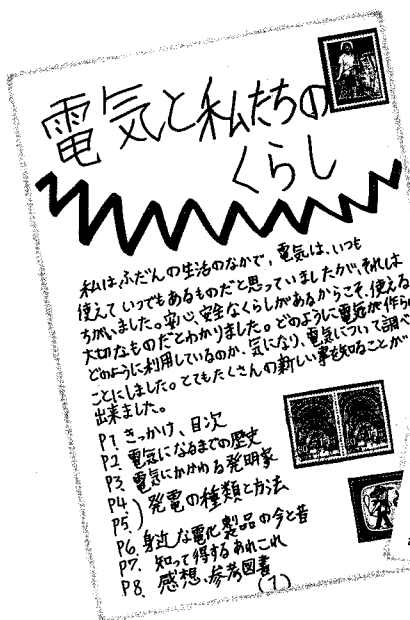 電気と私たちの
くらし
私は、ふだんの生活のなかで、電気は、いつも
使えていつでもあるものだと思っていましたが、それは
ちがいました。安心、安全なくらしがあるからこそ、使える
大切なものだとわかりました。どのように電気が作ら
どのように利用しているのか、気になり、電気について調べ
ことにしました。とてもたくさんの新しい事を知ることが
出来ました。
P1. きっかけ、目次
P2. 電気になるまでの歴史
P3. 電気にかかわる発明家
P4.
P5.) 発電の種類と方法
P6. 身近な電化製品の今と昔
P7. 知って得するあれこれ
P8. 感想、参考図書
(1)